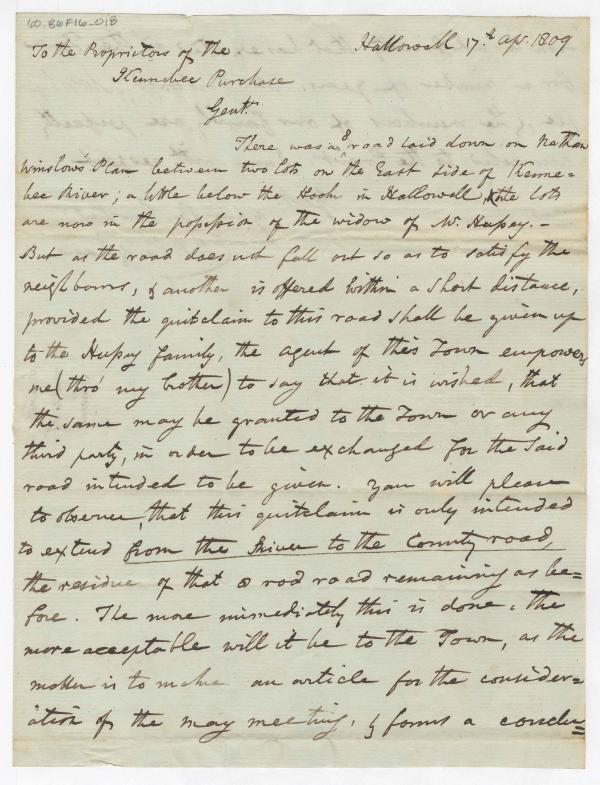 60-B6F16-018
To the Proprietors of the Hallowell 17.th ap. 1809
Kennebec Purchase
Gent.n
There was a 8 road laid down on Nathan
Winslow's Plan between two lots on the East side of Kenne=
bec River; a little below the Hook in Hallowell, & the lots
are now in the possession of the widow of Mr. Hussey. –
But as the road does not fall out so as to satisfy the
neighbours, & another is offered within a short distance,
provided the quitclaim to this road shall be given up
to the Hussey family, the agent of this Town empowers
me (thro' my brother) to say that it is wished, that
the same may be granted to the Town or any
third party, in order to be exchanged for the said
road intended to be given. You will please
to observe, that this quitclaim is only intended
to extend from the River to the County road,
the residue of that 8 rod road remaining as be=
fore. The more immediately this is done, the
more acceptable will it be to the Town, as the
matter is to make an article for the consider=
ation of the may meeting, & forms a conclu=